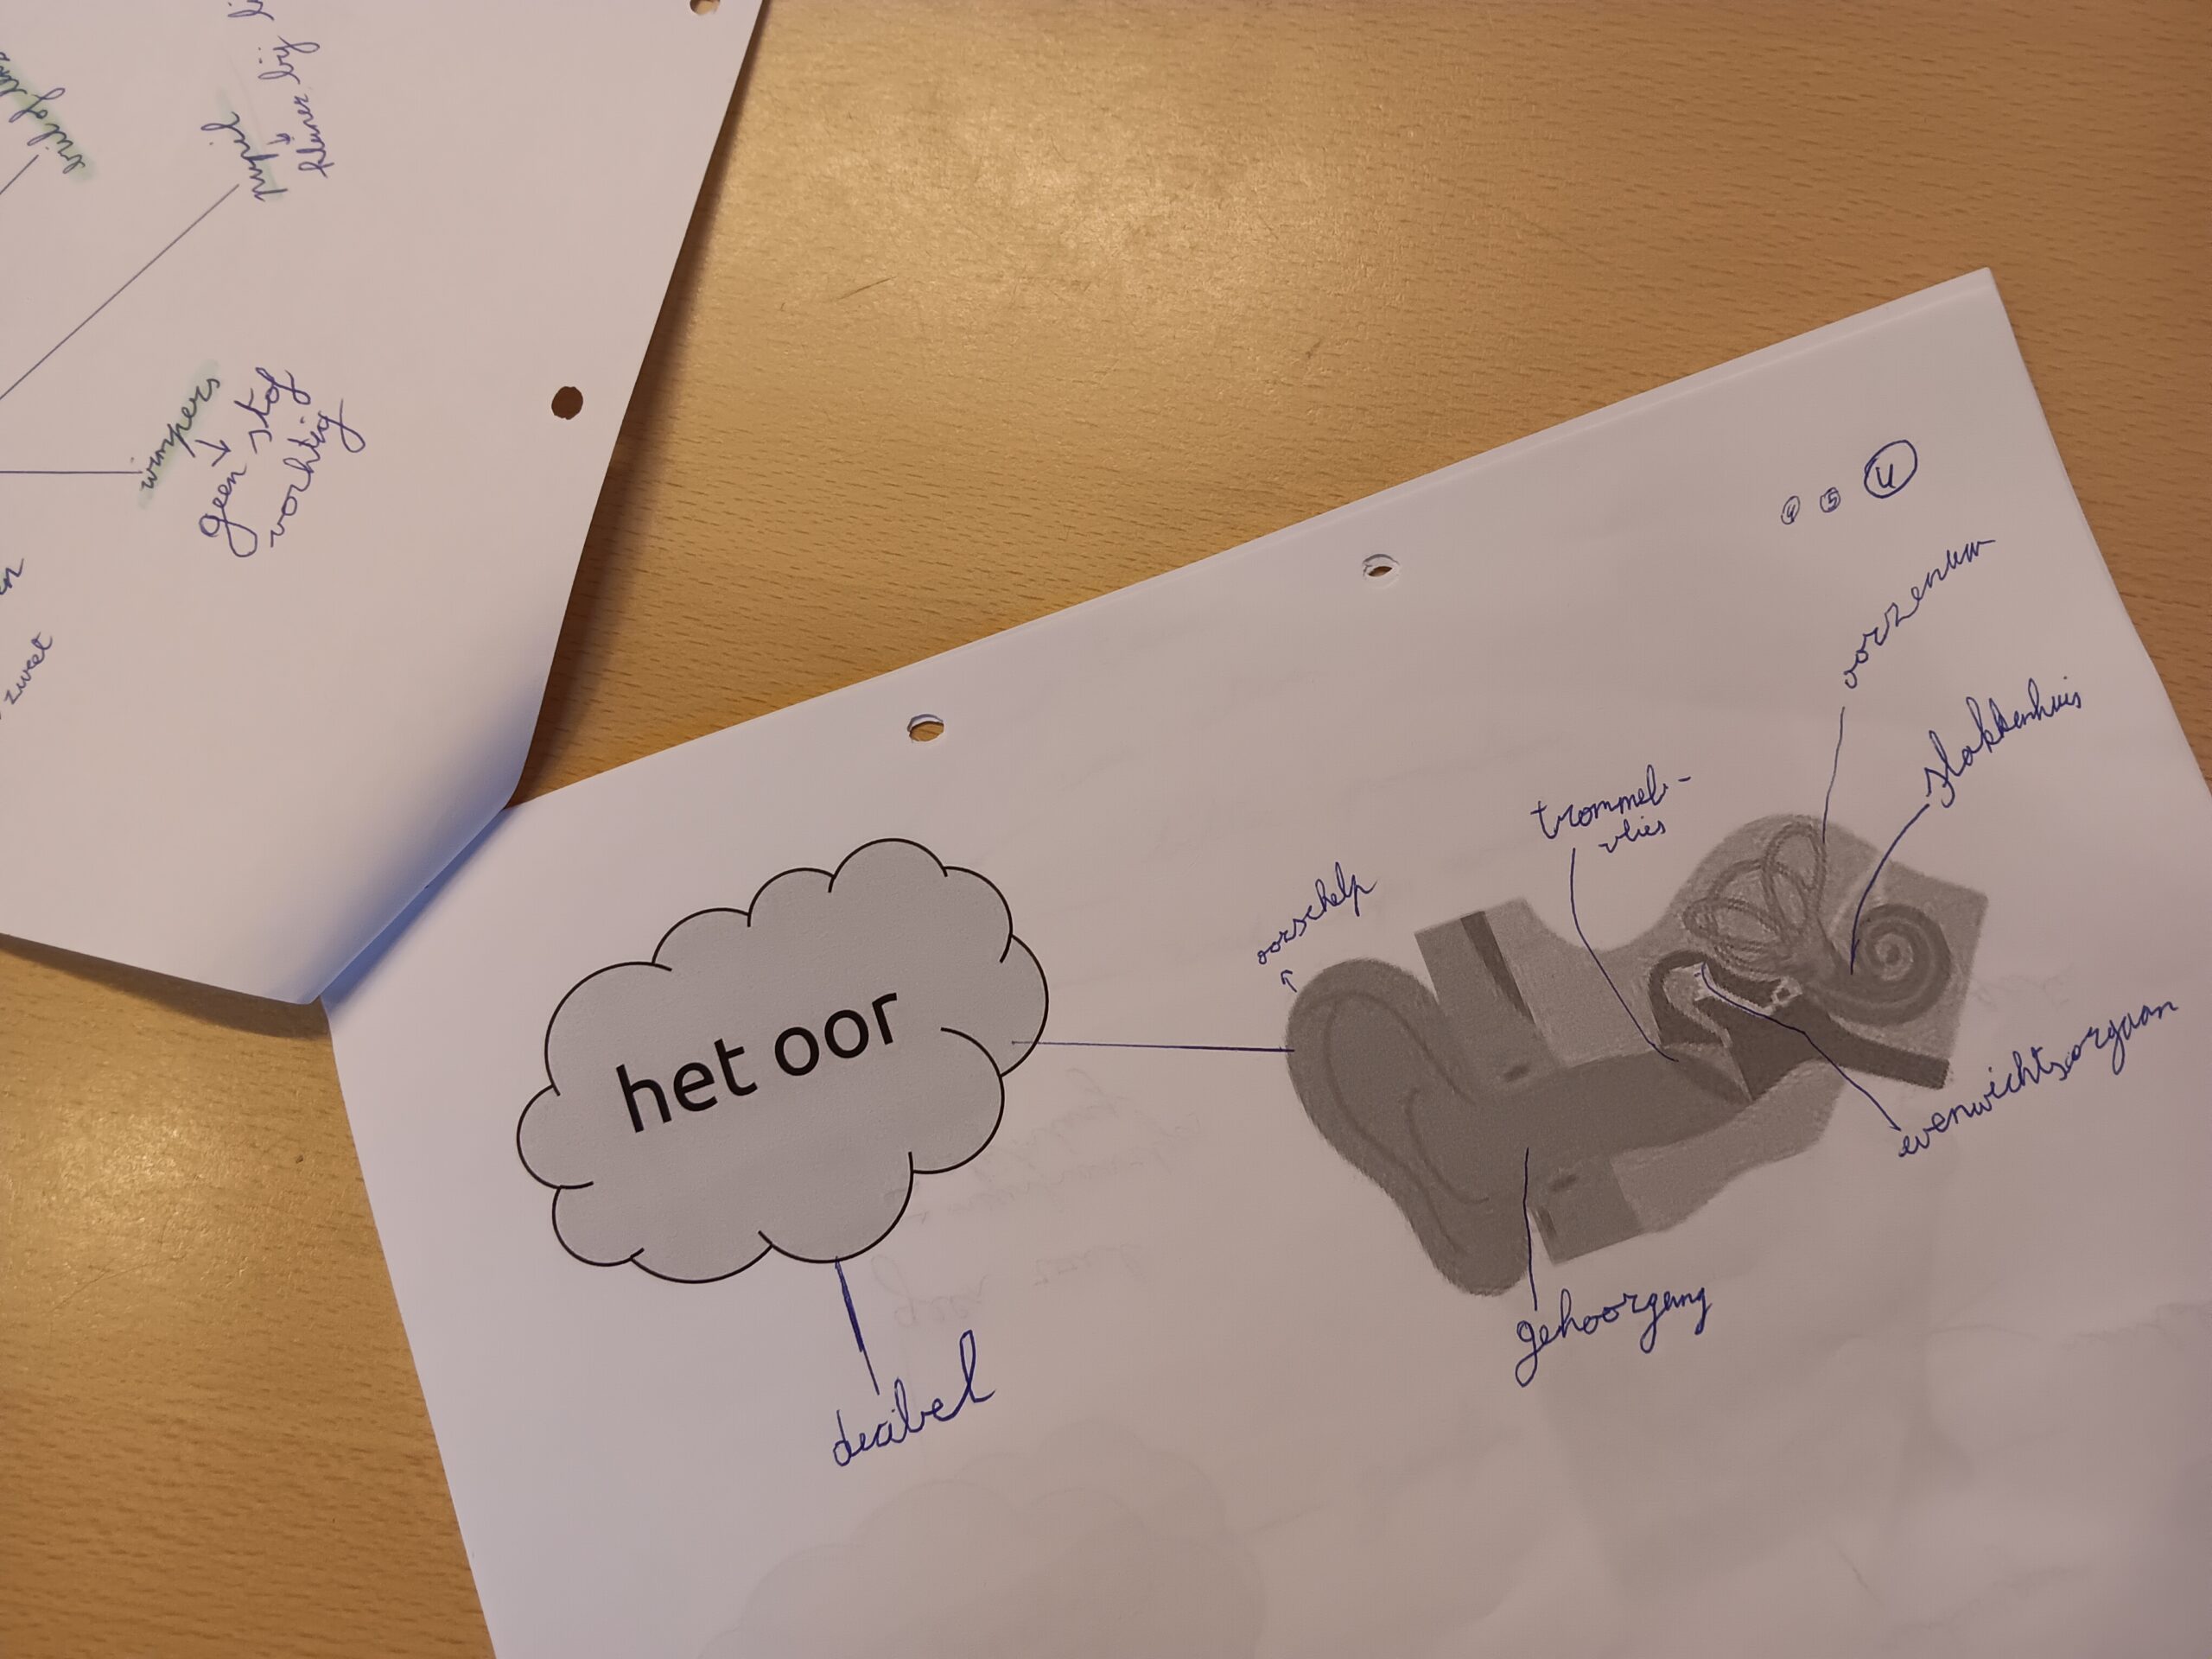 pupil
↓
kleiner bij
wimpers
↓
geen stof
vochtig
zweet
4
oorzenuw
slakkenhuis
trommel-
vlies
oorschelp
↑
het oor
evenwichtsorgaan
gehoorgang
decibel